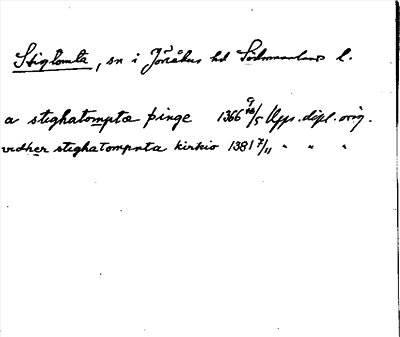 Stigtomta, sn i Jönåkers hd Södermanlands l.
a stighatompta þinge 1366 9/5 Upps. dipl. orig.
vedher stighatompta kirkio 1381 7/11 " " "